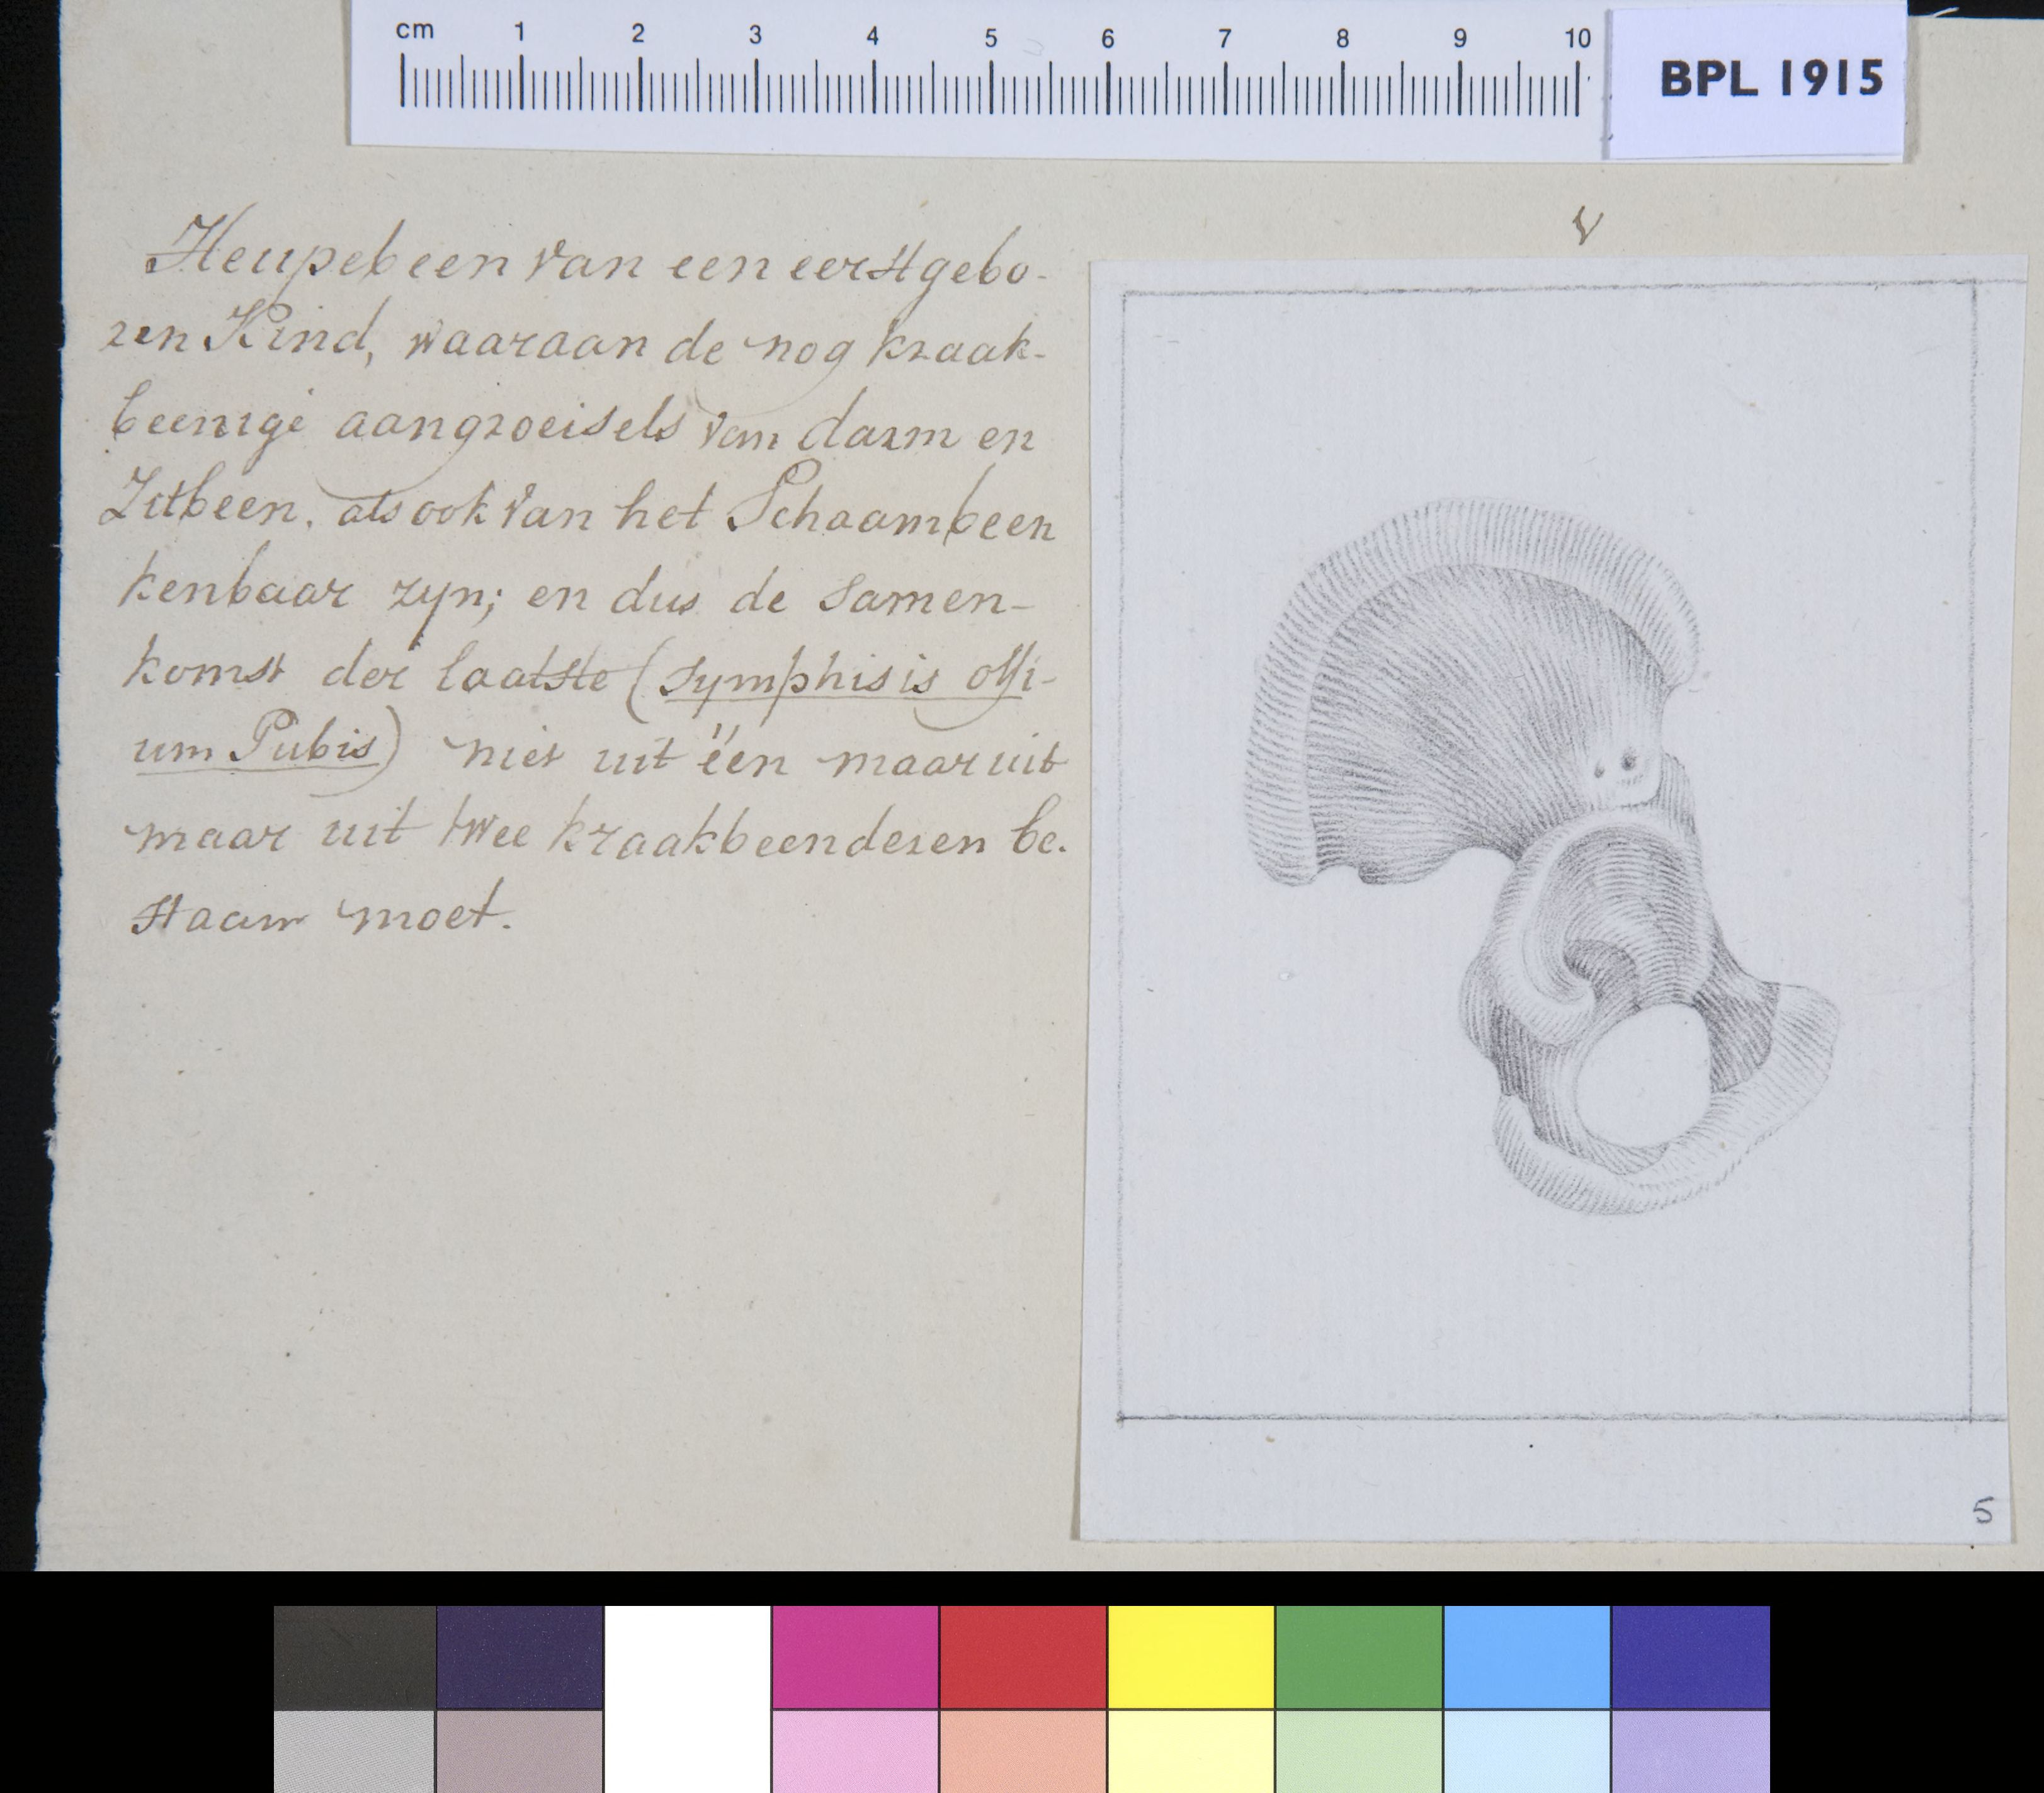 cm 1 2 3 4 5 6 7 8 9 10
BPL 1915
V
Heupebeen van een eerstgebo-
ren Kind, waaraan de nog kraak-
beenige aangroeisels van darm en
Zitbeen, als ook van het Schaambeen
kenbaar zyn; en dus de samen-
komst der laatste (symphisis ossi-
um Pubis) niet uit ëen maar uit
maar uit twee kraakbeenderen be.
staan moet.
5